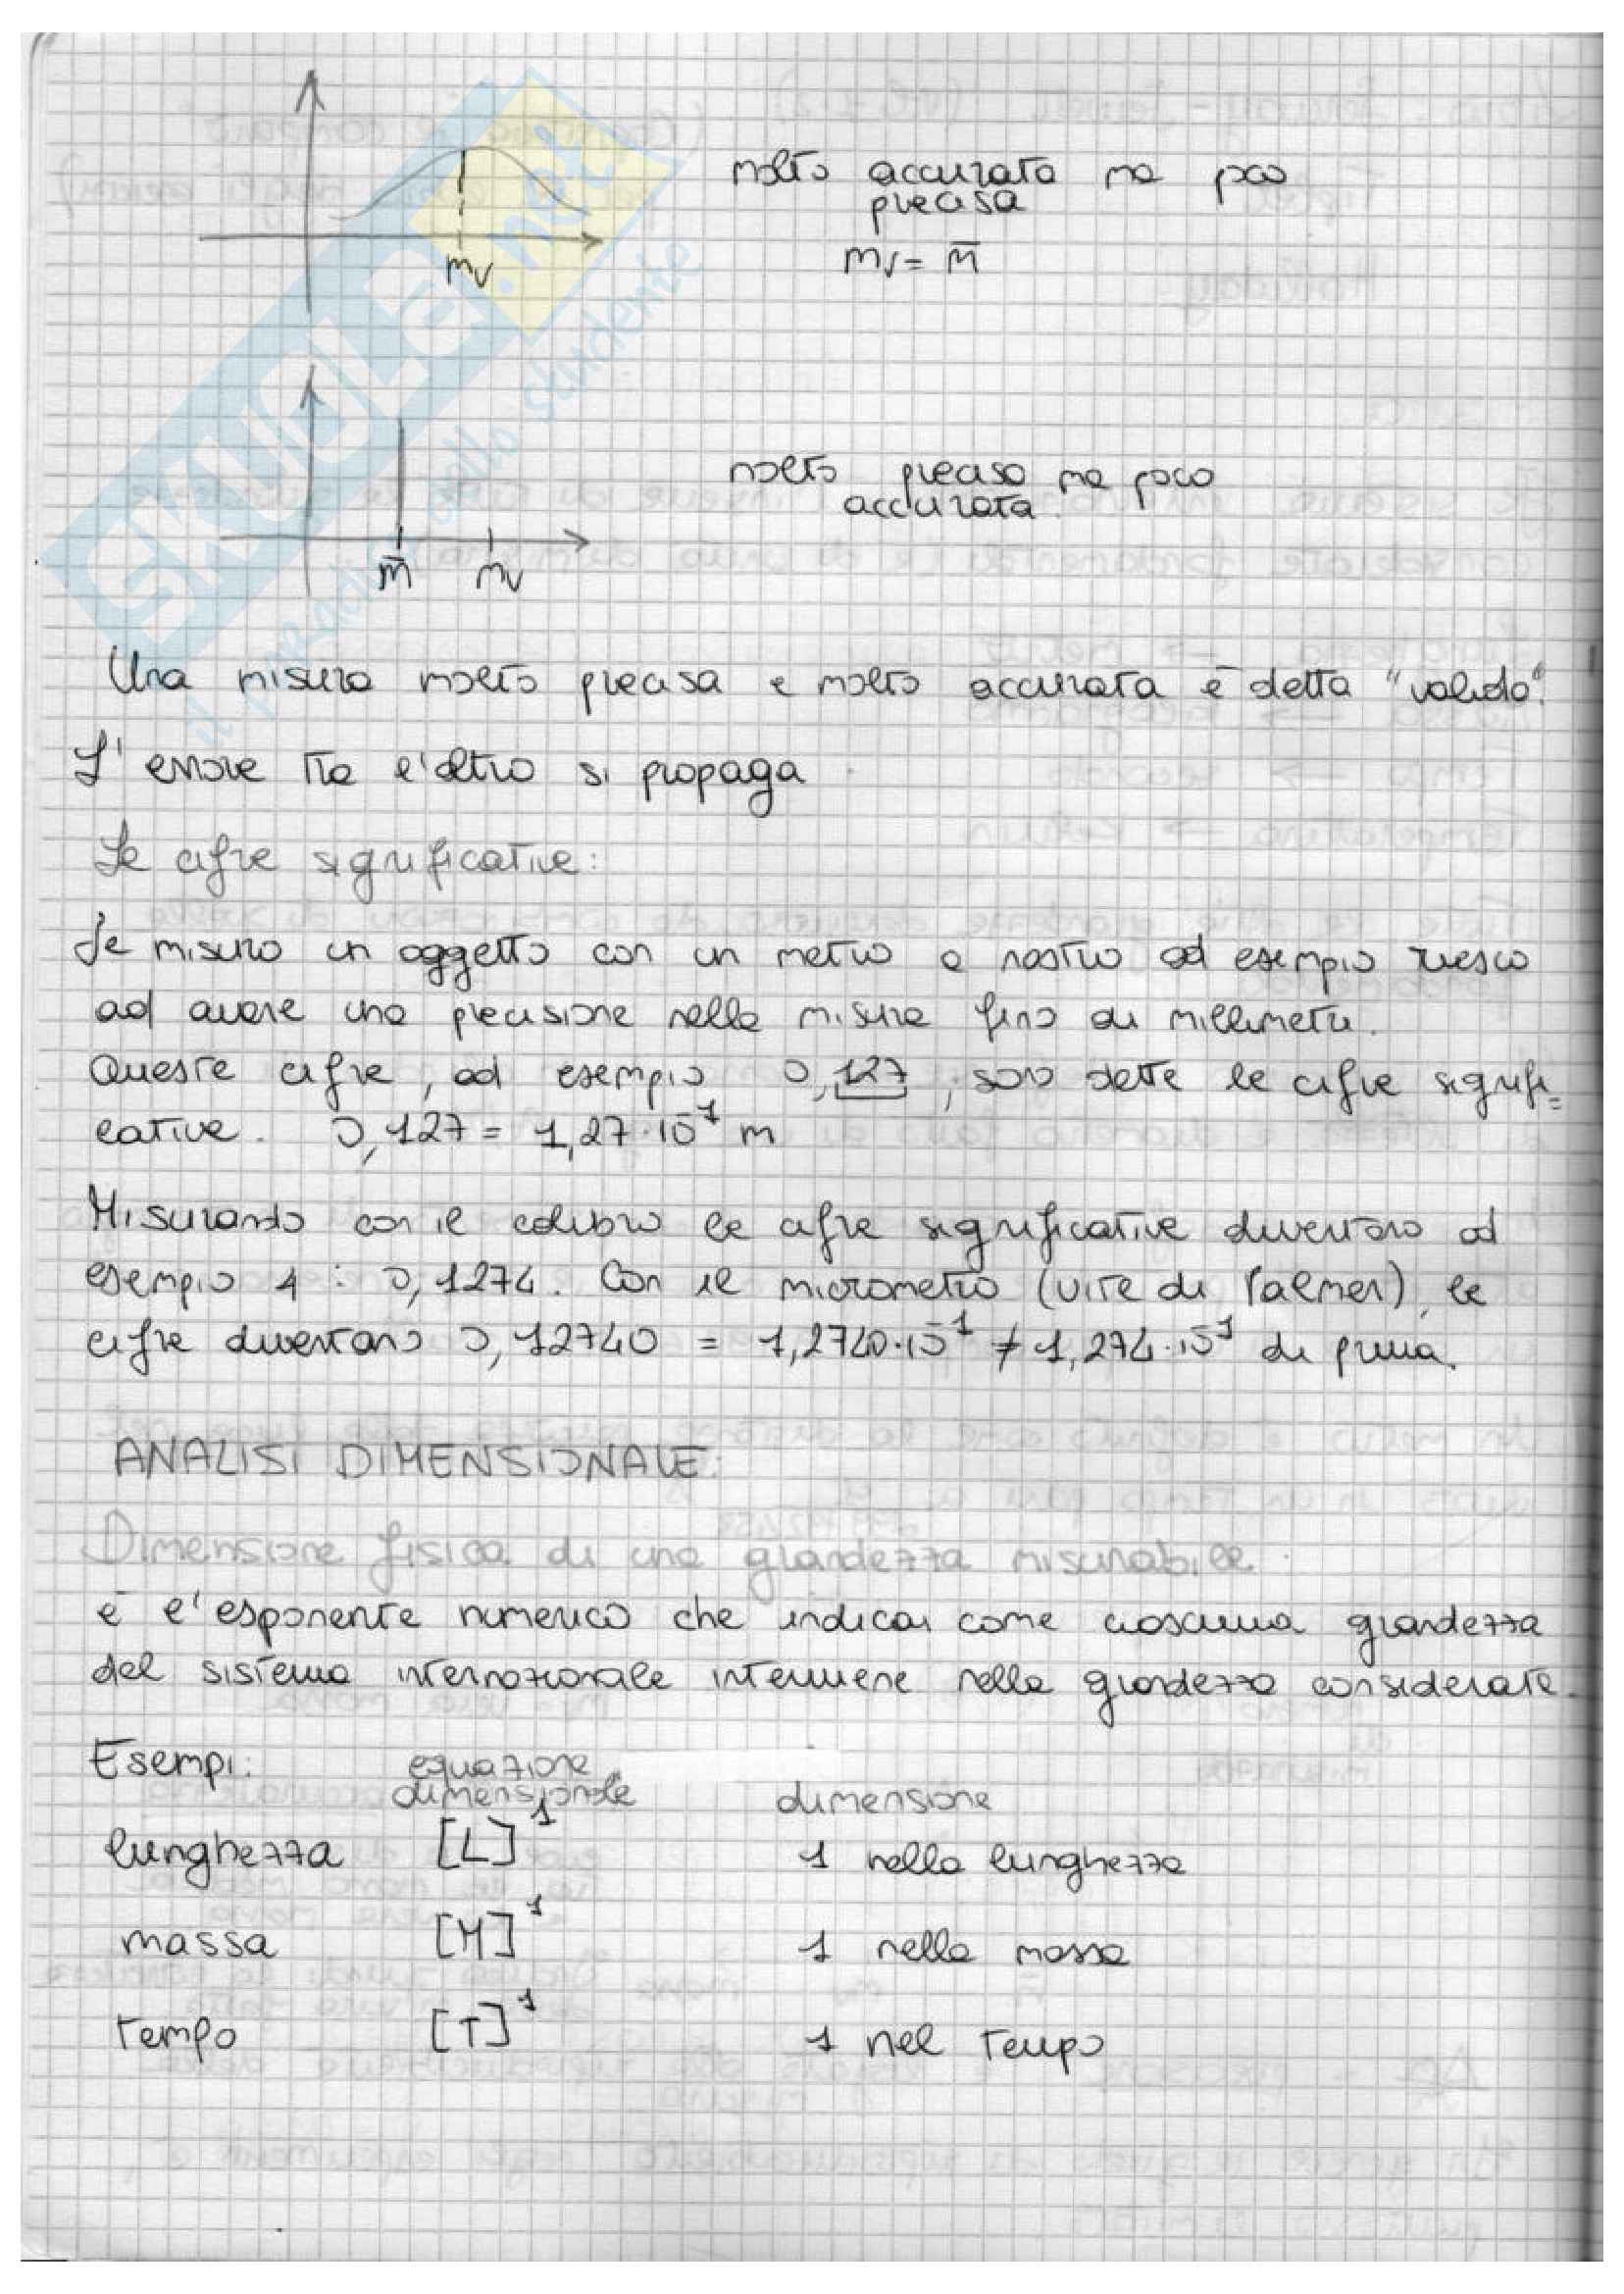 molto accurata ma poco
precisa
mv = m̄
mv
molto precisa ma poco
accurata
m̄ mv
Una misura molto precisa e molto accurata è detta "valida".
L'errore tra l'altro si propaga
Le cifre significative:
Se misuro un oggetto con un metro a nastro ad esempio riesco
ad avere una precisione nella misura fino ai millimetri.
Queste cifre, ad esempio 0,127, sono dette le cifre signifi=
cative. 0,127 = 1,27·10⁻¹ m
Misurando con il calibro le cifre significative diventano ad
esempio 4: 0,1274. Con il micrometro (vite di Palmer), le
cifre diventano 0,12740 = 1,2740·10⁻¹ ≠ 1,274·10⁻¹ di prima.
ANALISI DIMENSIONALE:
Dimensione fisica di una grandezza misurabile:
è l'esponente numerico che indica come ciascuna grandezza
del sistema internazionale interviene nella grandezza considerata.
Esempi: equazione
dimensionale dimensione
lunghezza [L]¹ 1 nella lunghezza
massa [M]¹ 1 nella massa
tempo [T]¹ 1 nel tempo
SKUOLA.net
il paradiso dello studente